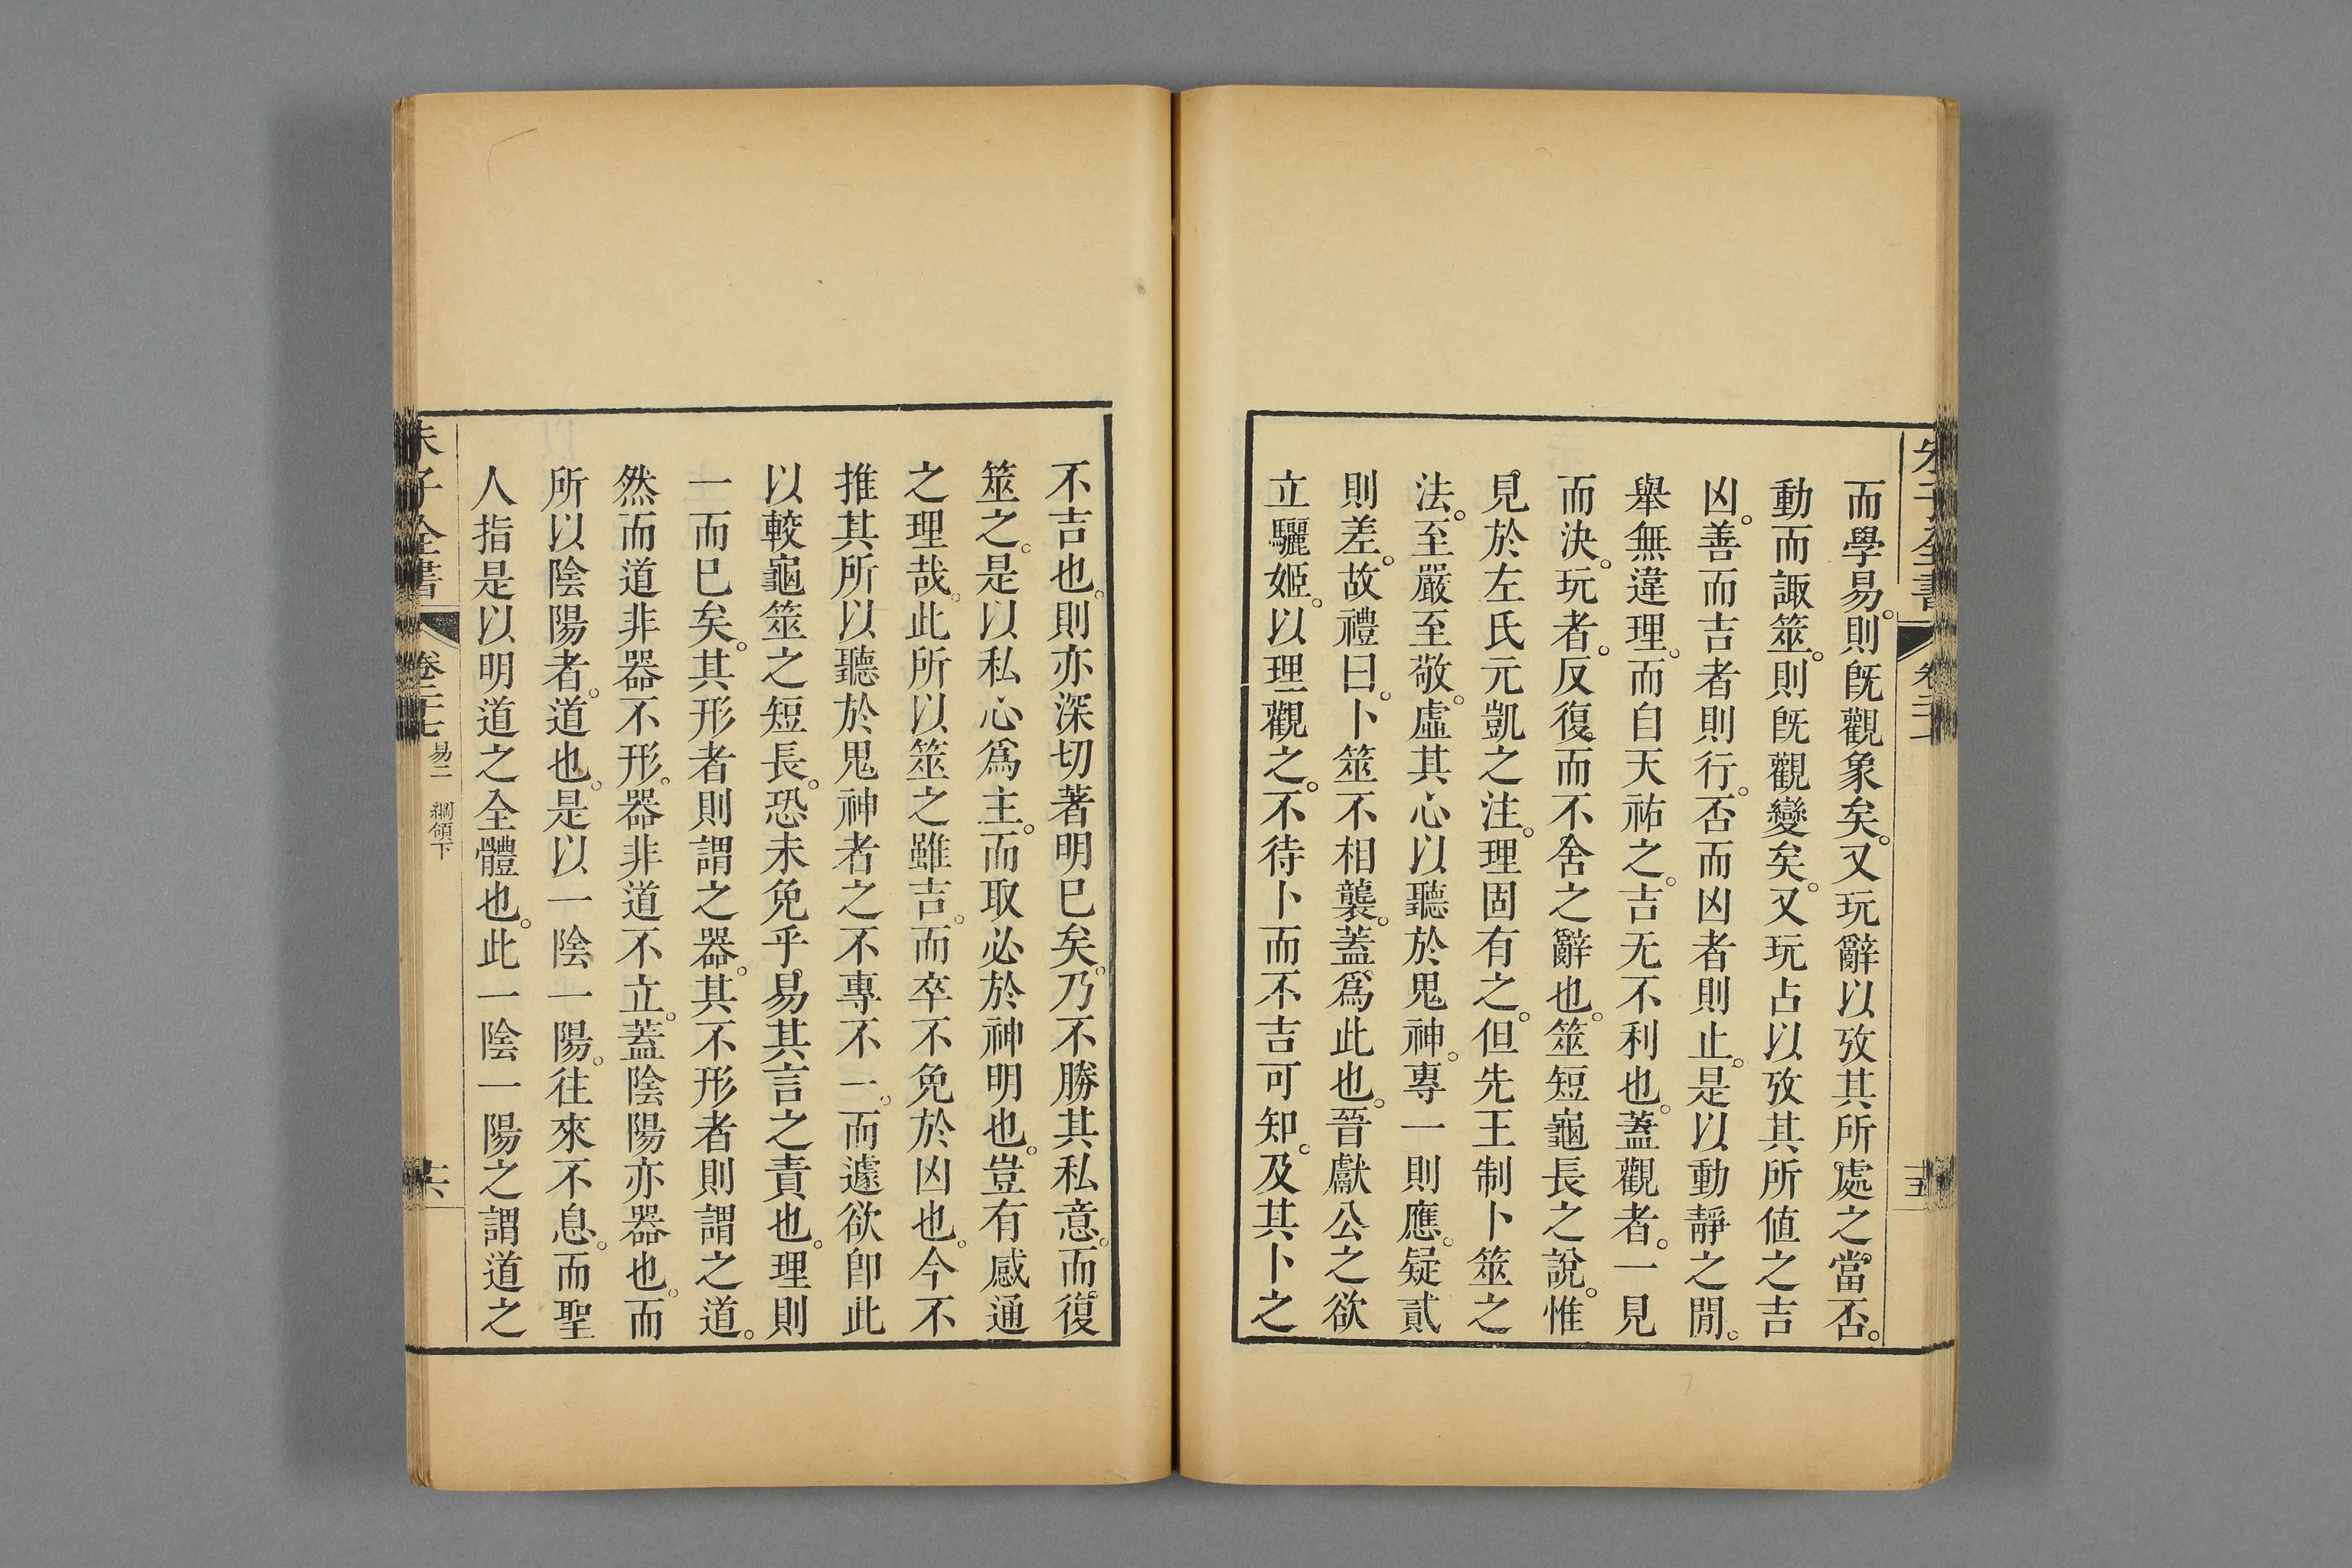 而學易。則旣觀象矣。又玩辭以攷其所處之當否。
動而諏筮。則旣觀變矣。又玩占以攷其所値之吉
凶。善而吉者則行。否而凶者則止。是以動靜之閒。
舉無違理。而自天祐之。吉无不利也。蓋觀者。一見
而決。玩者。反復而不舍之辭也。筮短龜長之說。惟
見於左氏元凱之注。理固有之。但先王制卜筮之
法。至嚴至敬。虛其心以聽於鬼神。專一則應。疑貳
則差。故禮曰。卜筮不相襲。蓋爲此也。晉獻公之欲
立驪姬。以理觀之。不待卜而不吉可知。及其卜之
不吉也。則亦深切著明巳矣。乃不勝其私意。而復
筮之。是以私心爲主。而取必於神明也。豈有感通
之理哉。此所以筮之雖吉。而卒不免於凶也。今不
推其所以聽於鬼神者之不專不一。而遽欲卽此
以較龜筮之短長。恐未免乎易其言之責也。理則
一而巳矣。其形者則謂之器。其不形者則謂之道。
然而道非器不形。器非道不立。蓋陰陽亦器也。而
所以陰陽者。道也。是以一陰一陽。往來不息。而聖
人指是以明道之全體也。此一陰一陽之謂道之
朱子全書 卷二十七 易二 綱領下 十六